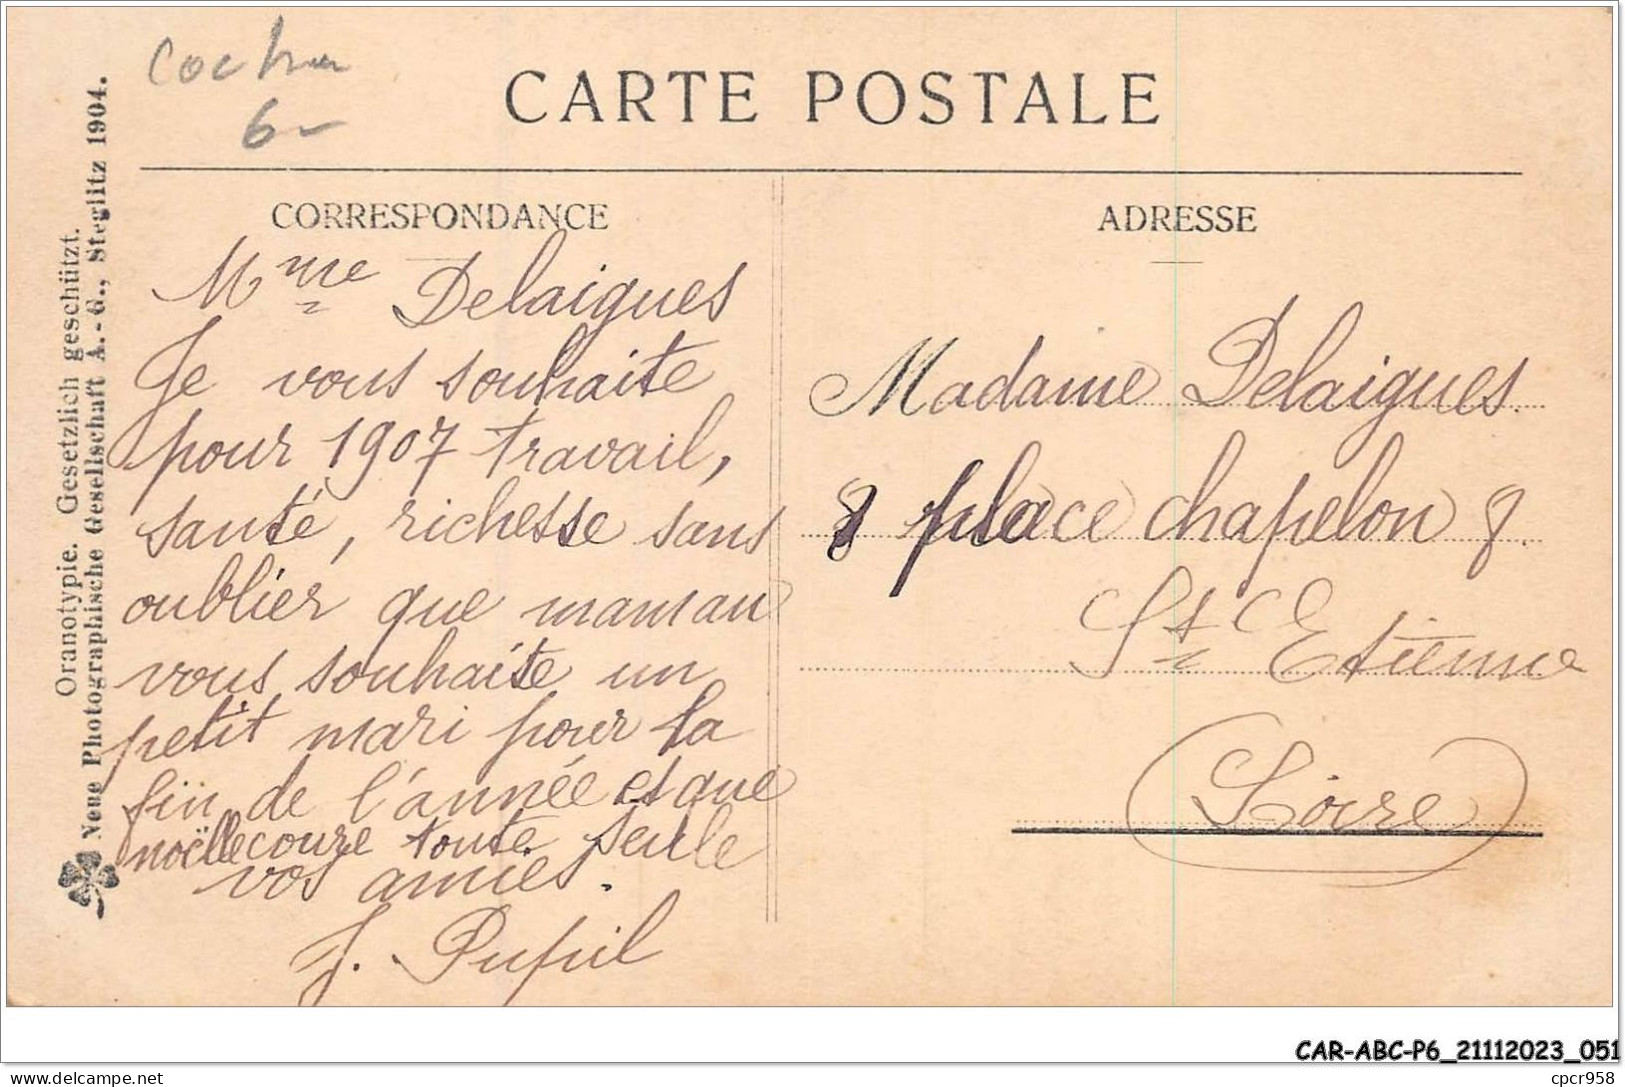 Cochon
6-
CARTE POSTALE
Oranotypie. Gesetzlich geschützt.
Neue Photographische Gesellschaft A.-G., Steglitz 1904.
CORRESPONDANCE
Mme Delaigues
Je vous souhaite
pour 1907 travail,
santé, richesse sans
oublier que maman
vous souhaite un
petit mari pour la
fin de l'année et que
noëlle coure toute seule
vos amies.
J. Pupil
ADRESSE
Madame Delaigues
8 place chapelon 8.
St Etienne
(Loire)
CAR-ABC-P6_21112023_051
delcampe.net
cpcr958